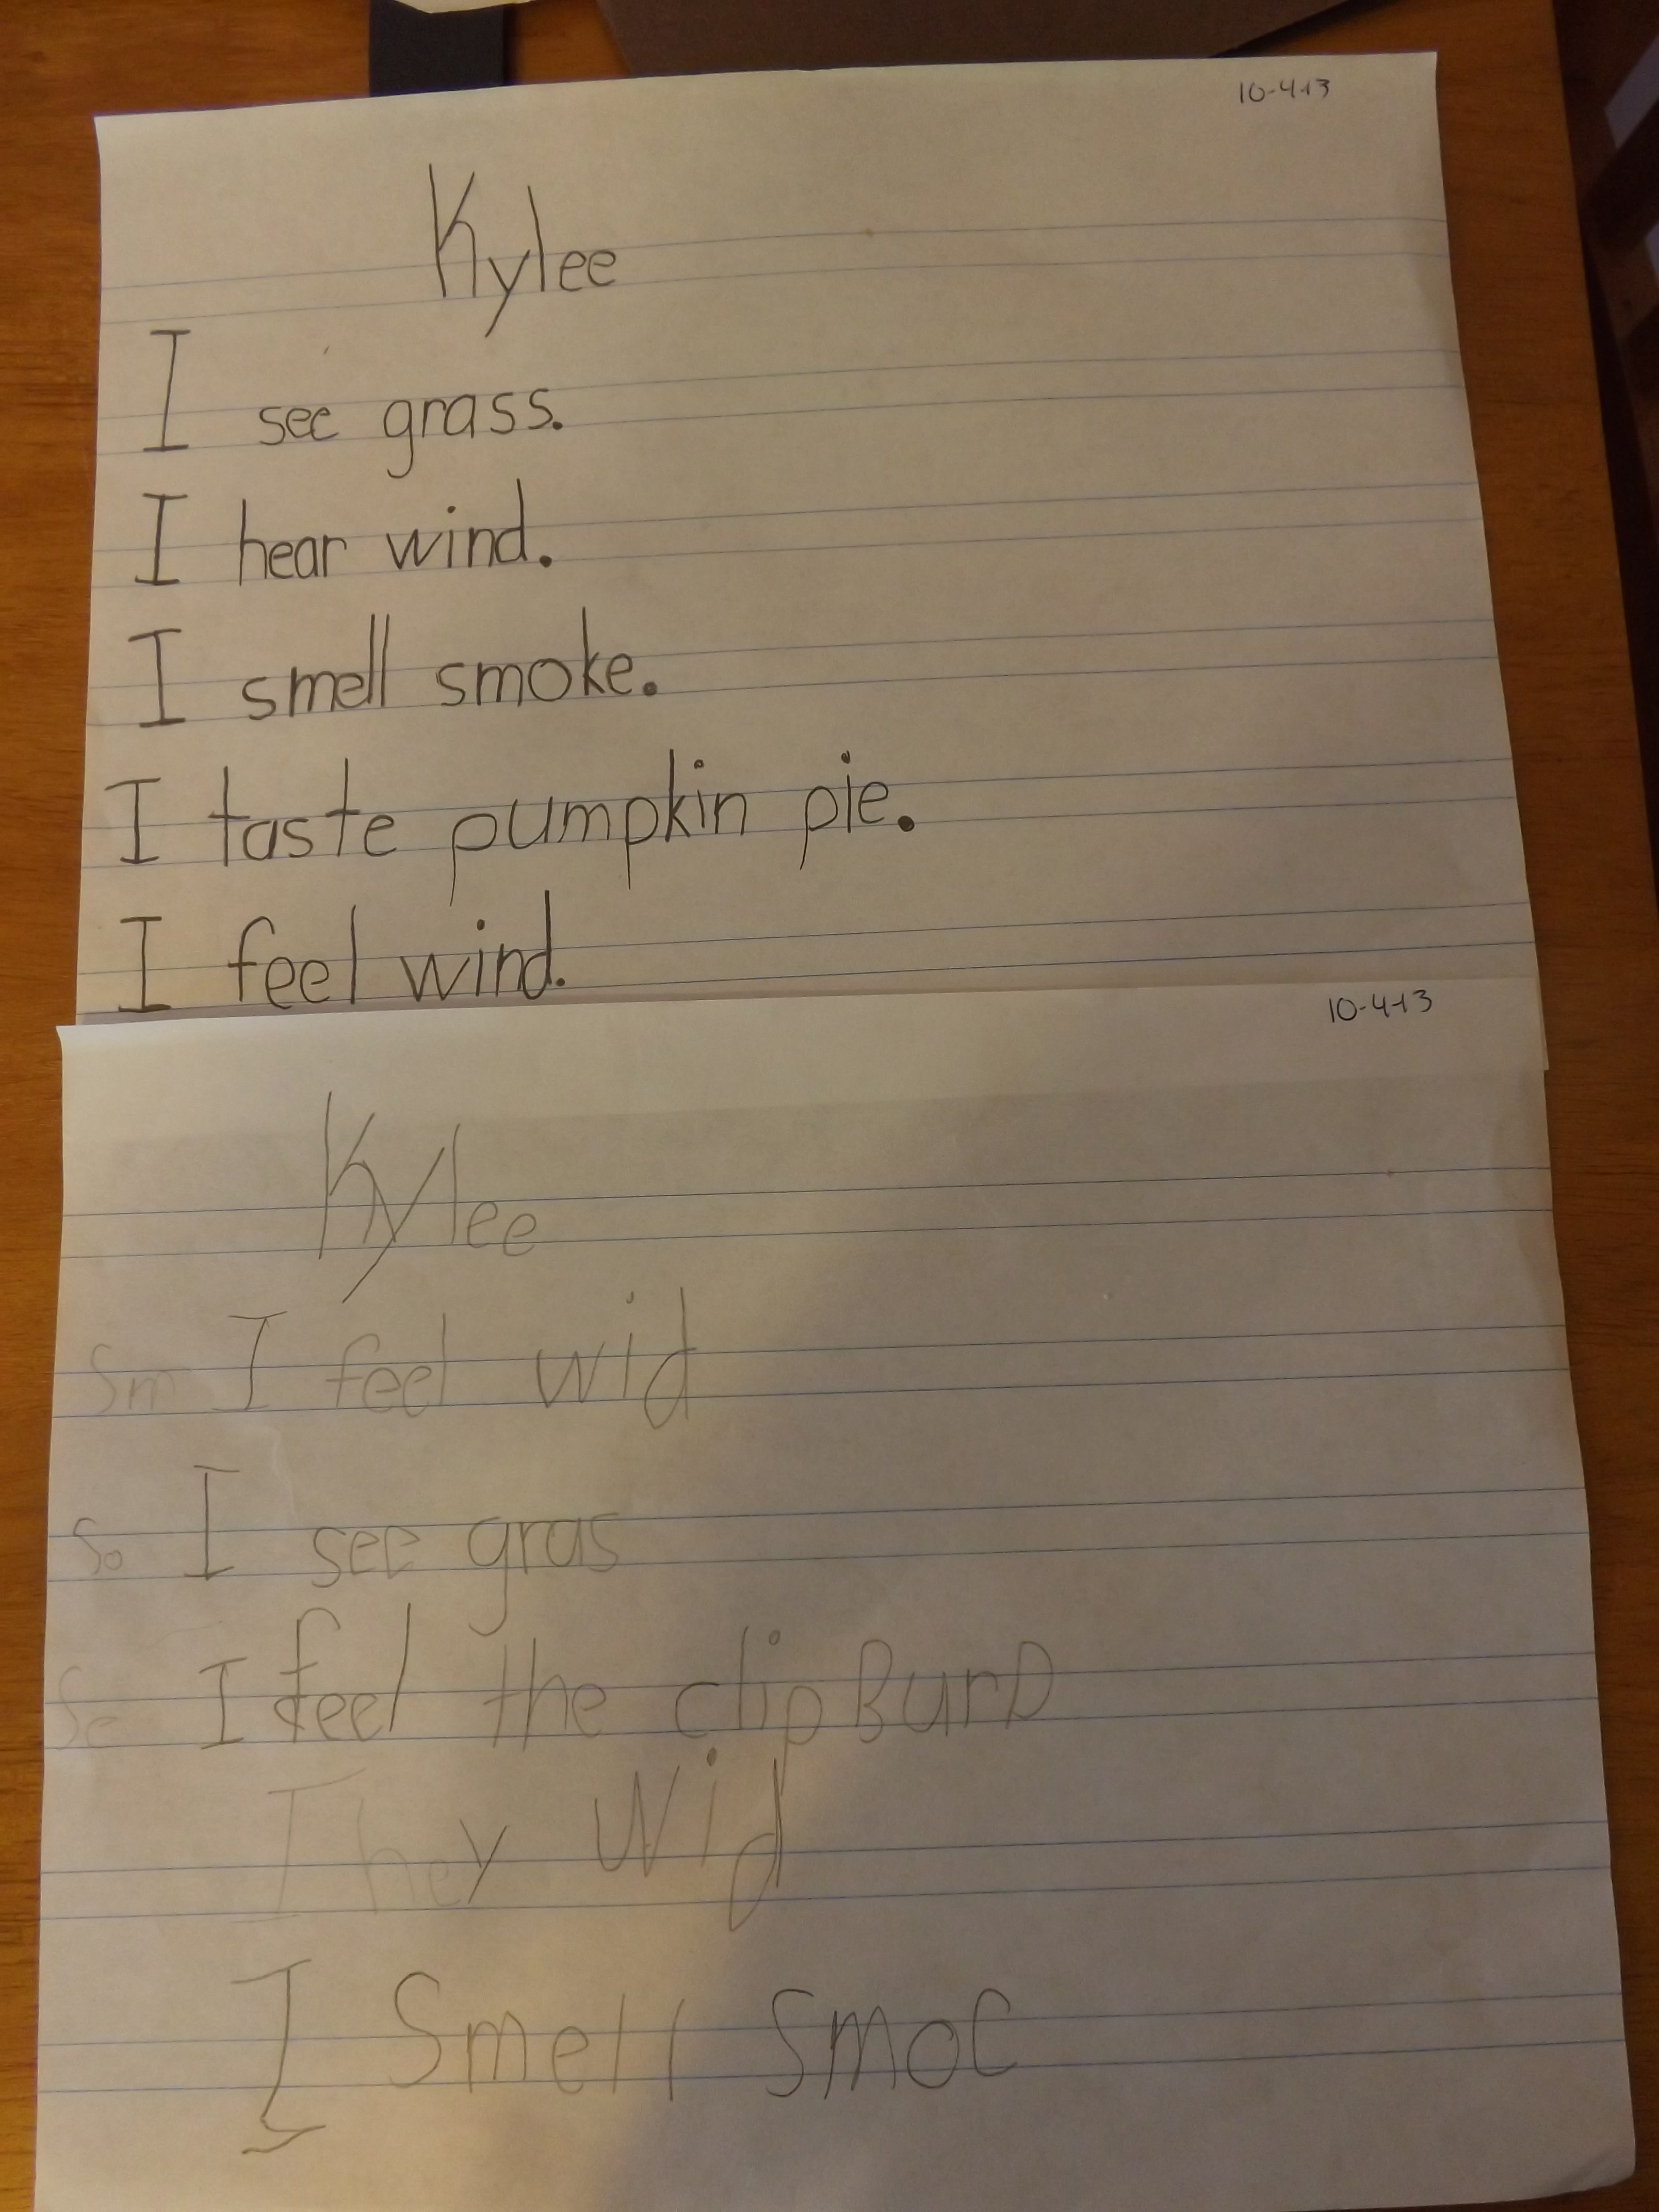 10-4-13
Kylee
I see grass.
I hear wind.
I smell smoke.
I taste pumpkin pie.
I feel wind.
10-4-13
Kylee
Sm I feel wid
So I see gras
Se I feel the clipBurD
I hey Wid
I Smell Smoc